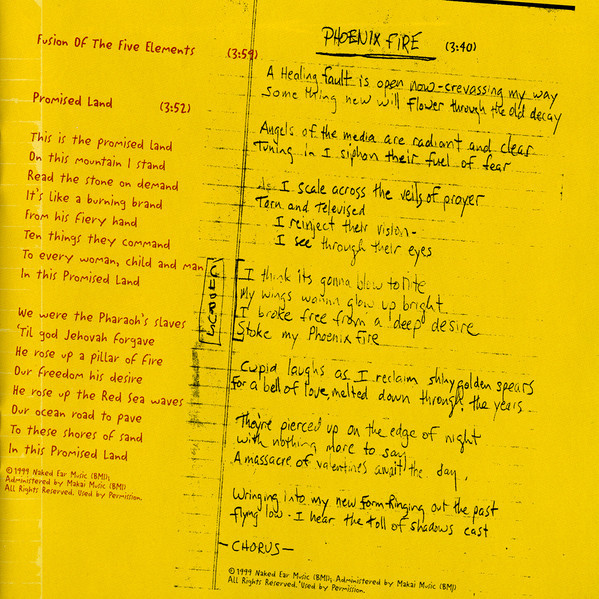 Fusion Of The Five Elements (3:59)
Promised Land (3:52)
This is the promised land
On this mountain I stand
Read the stone on demand
It's like a burning brand
From his fiery hand
Ten things they command
To every woman, child and man
In this Promised Land
We were the Pharaoh's slaves
'Til god Jehovah forgave
He rose up a pillar of fire
Our freedom his desire
He rose up the Red Sea waves
Our ocean road to pave
To these shores of sand
In this Promised Land
©1999 Naked Ear Music (BMI);
Administered by Makai Music (BMI)
All Rights Reserved. Used by Permission.
PHOENIX FIRE (3:40)
A Healing fault is open now-crevassing my way
Some thing new will flower through the old decay
Angels of the media are radiant and clear
Tuning in I siphon their fuel of fear
As I scale across the veils of prayer
Torn and Televised
I reinject their vision-
I see through their eyes
CHORUS
I think its gonna blow tonite
My wings wanna glow up bright
I broke free from a "deep" desire
Stoke my Phoenix Fire
Cupid laughs as I reclaim shiny golden spears
For a bell of love, melted down through the years
They're pierced up on the edge of night
with nothing more to say
A massacre of valentines await the day.
Wringing into my new form-Ringing out the past
flying low- I hear the toll of shadows cast
-CHORUS-
©1999 Naked Ear Music (BMI); Administered by Makai Music (BMI)
All Rights Reserved. Used by Permission.